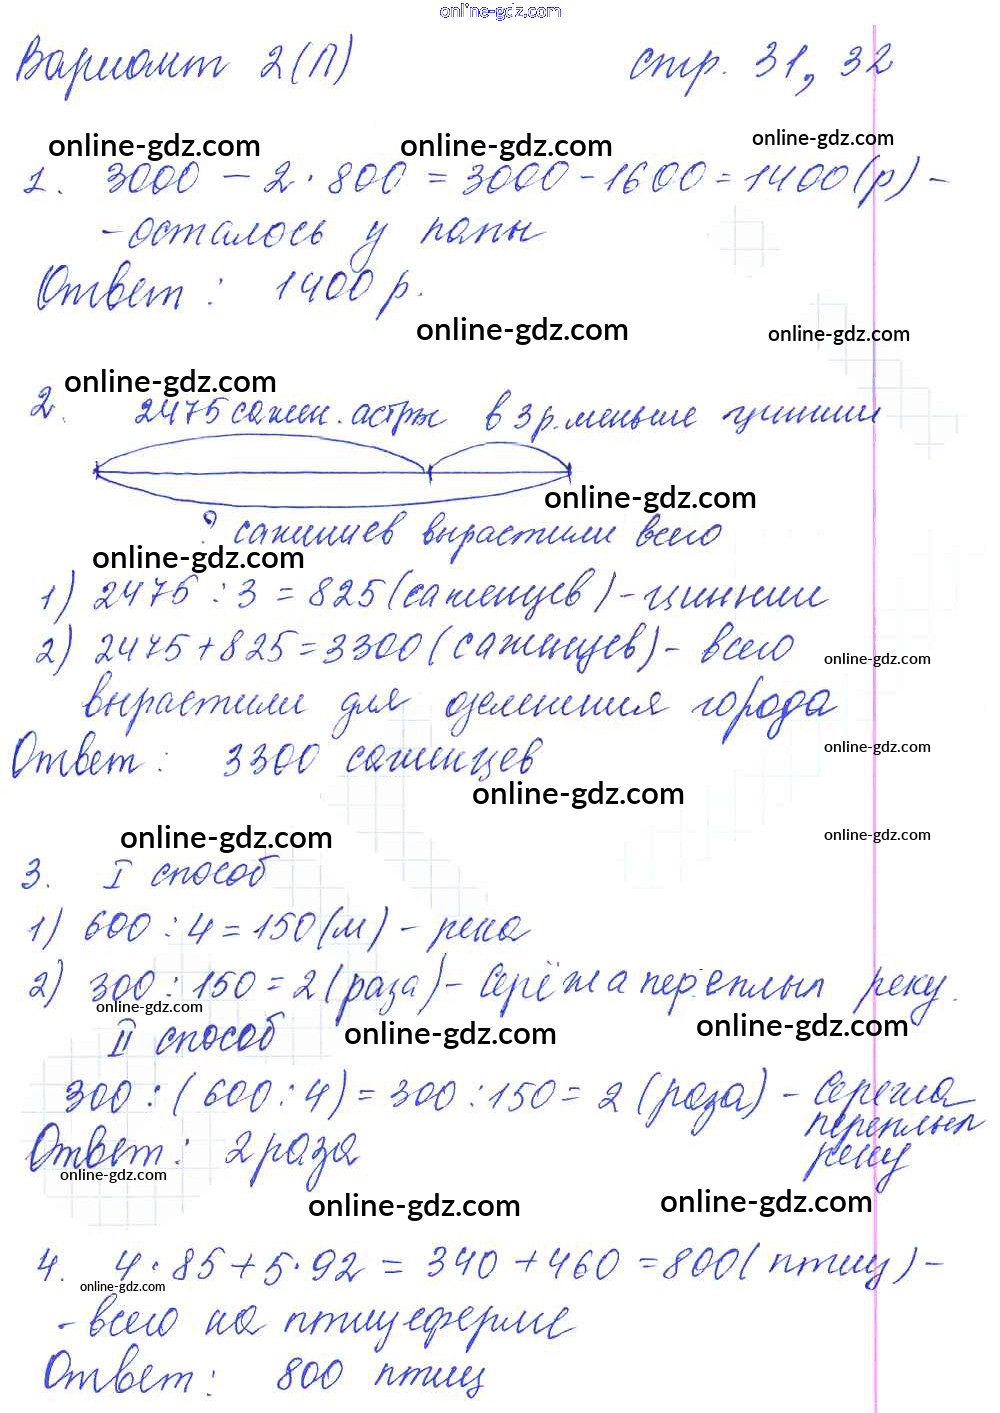 online-gdz.com
Вариант 2(П) стр. 31, 32
online-gdz.com online-gdz.com online-gdz.com
1. 3000 - 2 · 800 = 3000 - 1600 = 1400 (р) -
- осталось у папы
Ответ : 1400 р.
online-gdz.com online-gdz.com
online-gdz.com
2. 2475 сажен. астры в 3 р. меньше циннии
online-gdz.com
? саженцев вырастили всего
online-gdz.com
1) 2475 : 3 = 825 (саженцев) - циннии
2) 2475 + 825 = 3300 (саженцев) - всего
online-gdz.com
вырастили для озеленения города
online-gdz.com
Ответ : 3300 саженцев
online-gdz.com
online-gdz.com online-gdz.com
3. I способ
1) 600 : 4 = 150 (м) - река
2) 300 : 150 = 2 (раза) - Серёжа переплыл реку.
online-gdz.com
II способ online-gdz.com online-gdz.com
300 : (600 : 4) = 300 : 150 = 2 (раза) - Сережа
переплыл
Ответ : 2 раза реку
online-gdz.com
online-gdz.com online-gdz.com
4. 4 · 85 + 5 · 92 = 340 + 460 = 800 (птиц) -
online-gdz.com
- всего на птицеферме
Ответ : 800 птиц